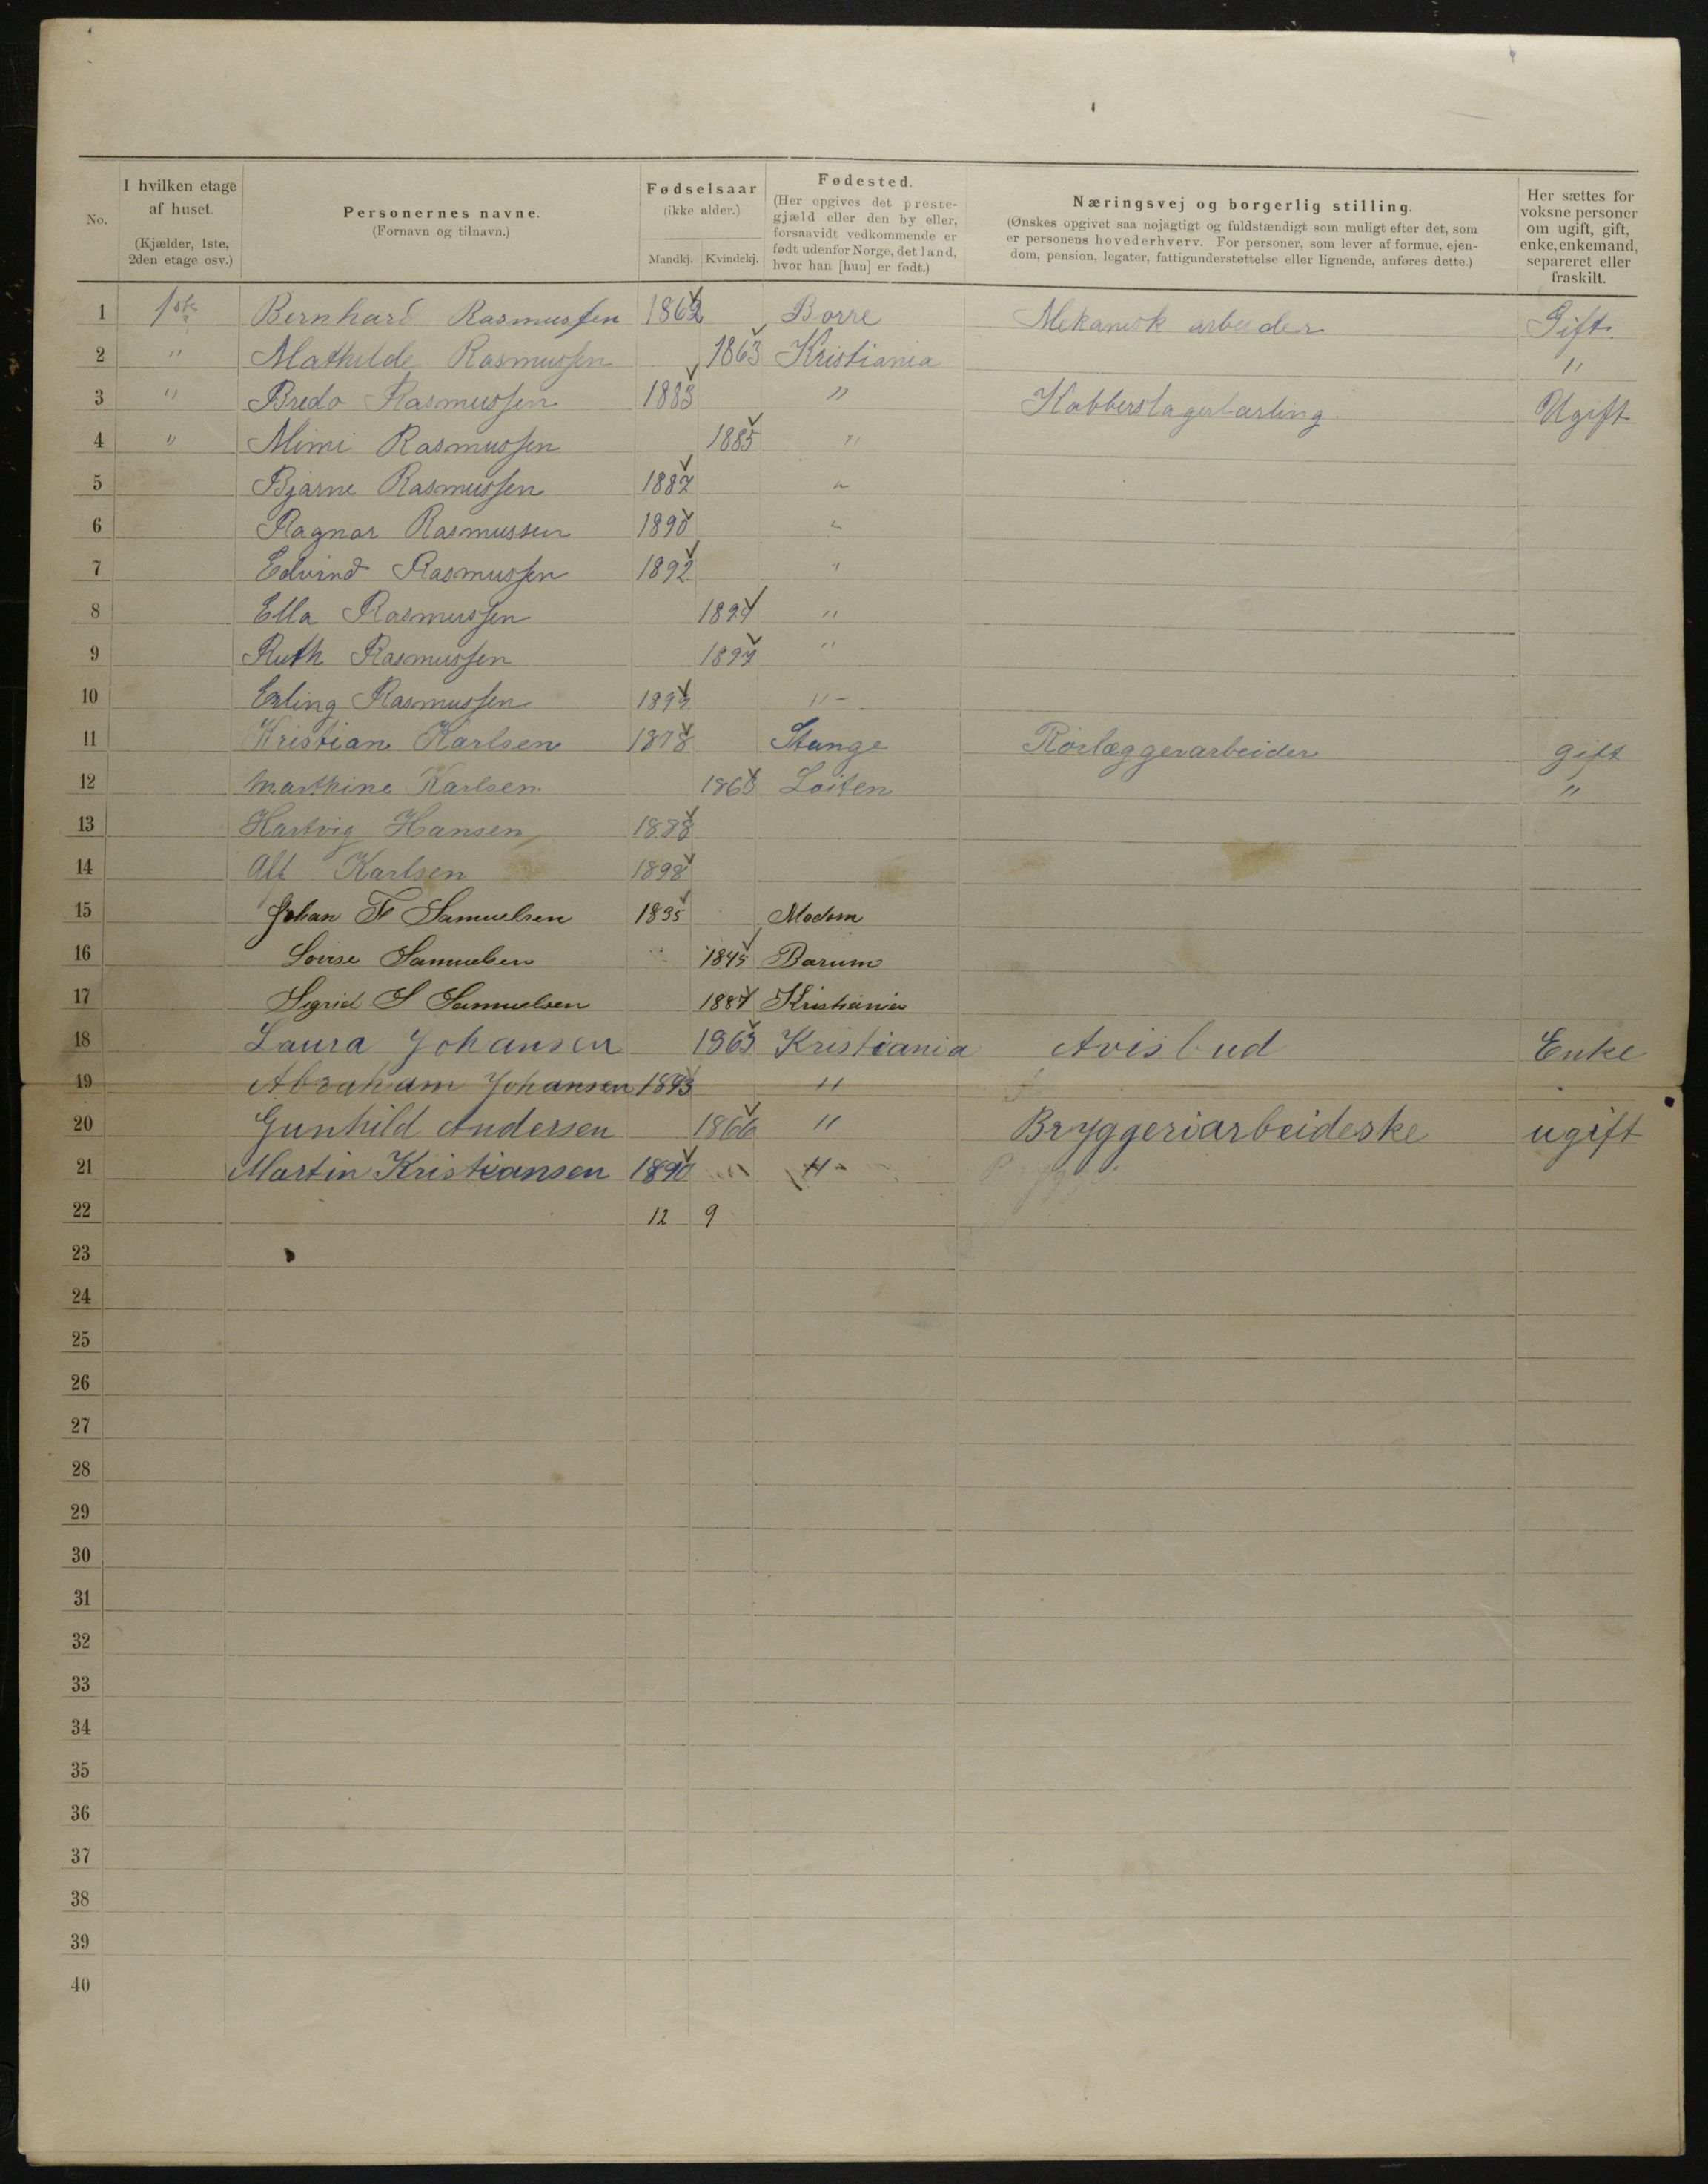 No. I hvilken etage af huset. (Kjælder, 1ste, 2den etage osv.) Personernes navne. (Fornavn og tilnavn.) Fødselsaar (ikke alder.) Mandkj. Kvindekj. Fødested. (Her opgives det prestegjæld eller den by eller, forsaavidt vedkommende er født udenfor Norge, det land, hvor han [hun] er født.) Næringsvej og borgerlig stilling. (Ønskes opgivet saa nøjagtigt og fuldstændigt som muligt efter det, som er personens hovederhverv. For personer, som lever af formue, ejendom, pension, legater, fattigunderstøttelse eller lignende, anføres dette.) Her sættes for voksne personer om ugift, gift, enke, enkemand, separeret eller fraskilt.
1 1ste Bernhard Rasmussen 1862 Borre Mekanisk arbeider Gift.
2 " Mathilde Rasmussen 1863 Kristiania "
3 " Bredo Rasmussen 1883 " Kobberslagerlærling. Ugift
4 " Mimi Rasmussen 1885 "
5 Bjarne Rasmussen 1887 "
6 Ragnar Rasmussen 1890 "
7 Edvind Rasmussen 1892 "
8 Ella Rasmussen 1894 "
9 Ruth Rasmussen 1897 "
10 Erling Rasmussen 1899 " -
11 Kristian Karlsen 1878 Stange Rørlæggerarbeider gift
12 Marthine Karlsen Løiten "
13 Hartvig Hansen 1888
14 Alf Karlsen 1898
15 Johan Samuelsen 1835 Modum
16 Lovise Samuelsen 1845 Bærum
17 Sigrid S Samuelsen 1887 Kristiania
18 Laura Johansen 1863 Kristiania Avisbud Enke
19 Abraham Johansen 1893 "
20 Gunhild Andersen 1866 " Bryggeriarbeideske ugift
21 Martin Kristiansen 1890 " -
22 12 9
23
24
25
26
27
28
29
30
31
32
33
34
35
36
37
38
39
40